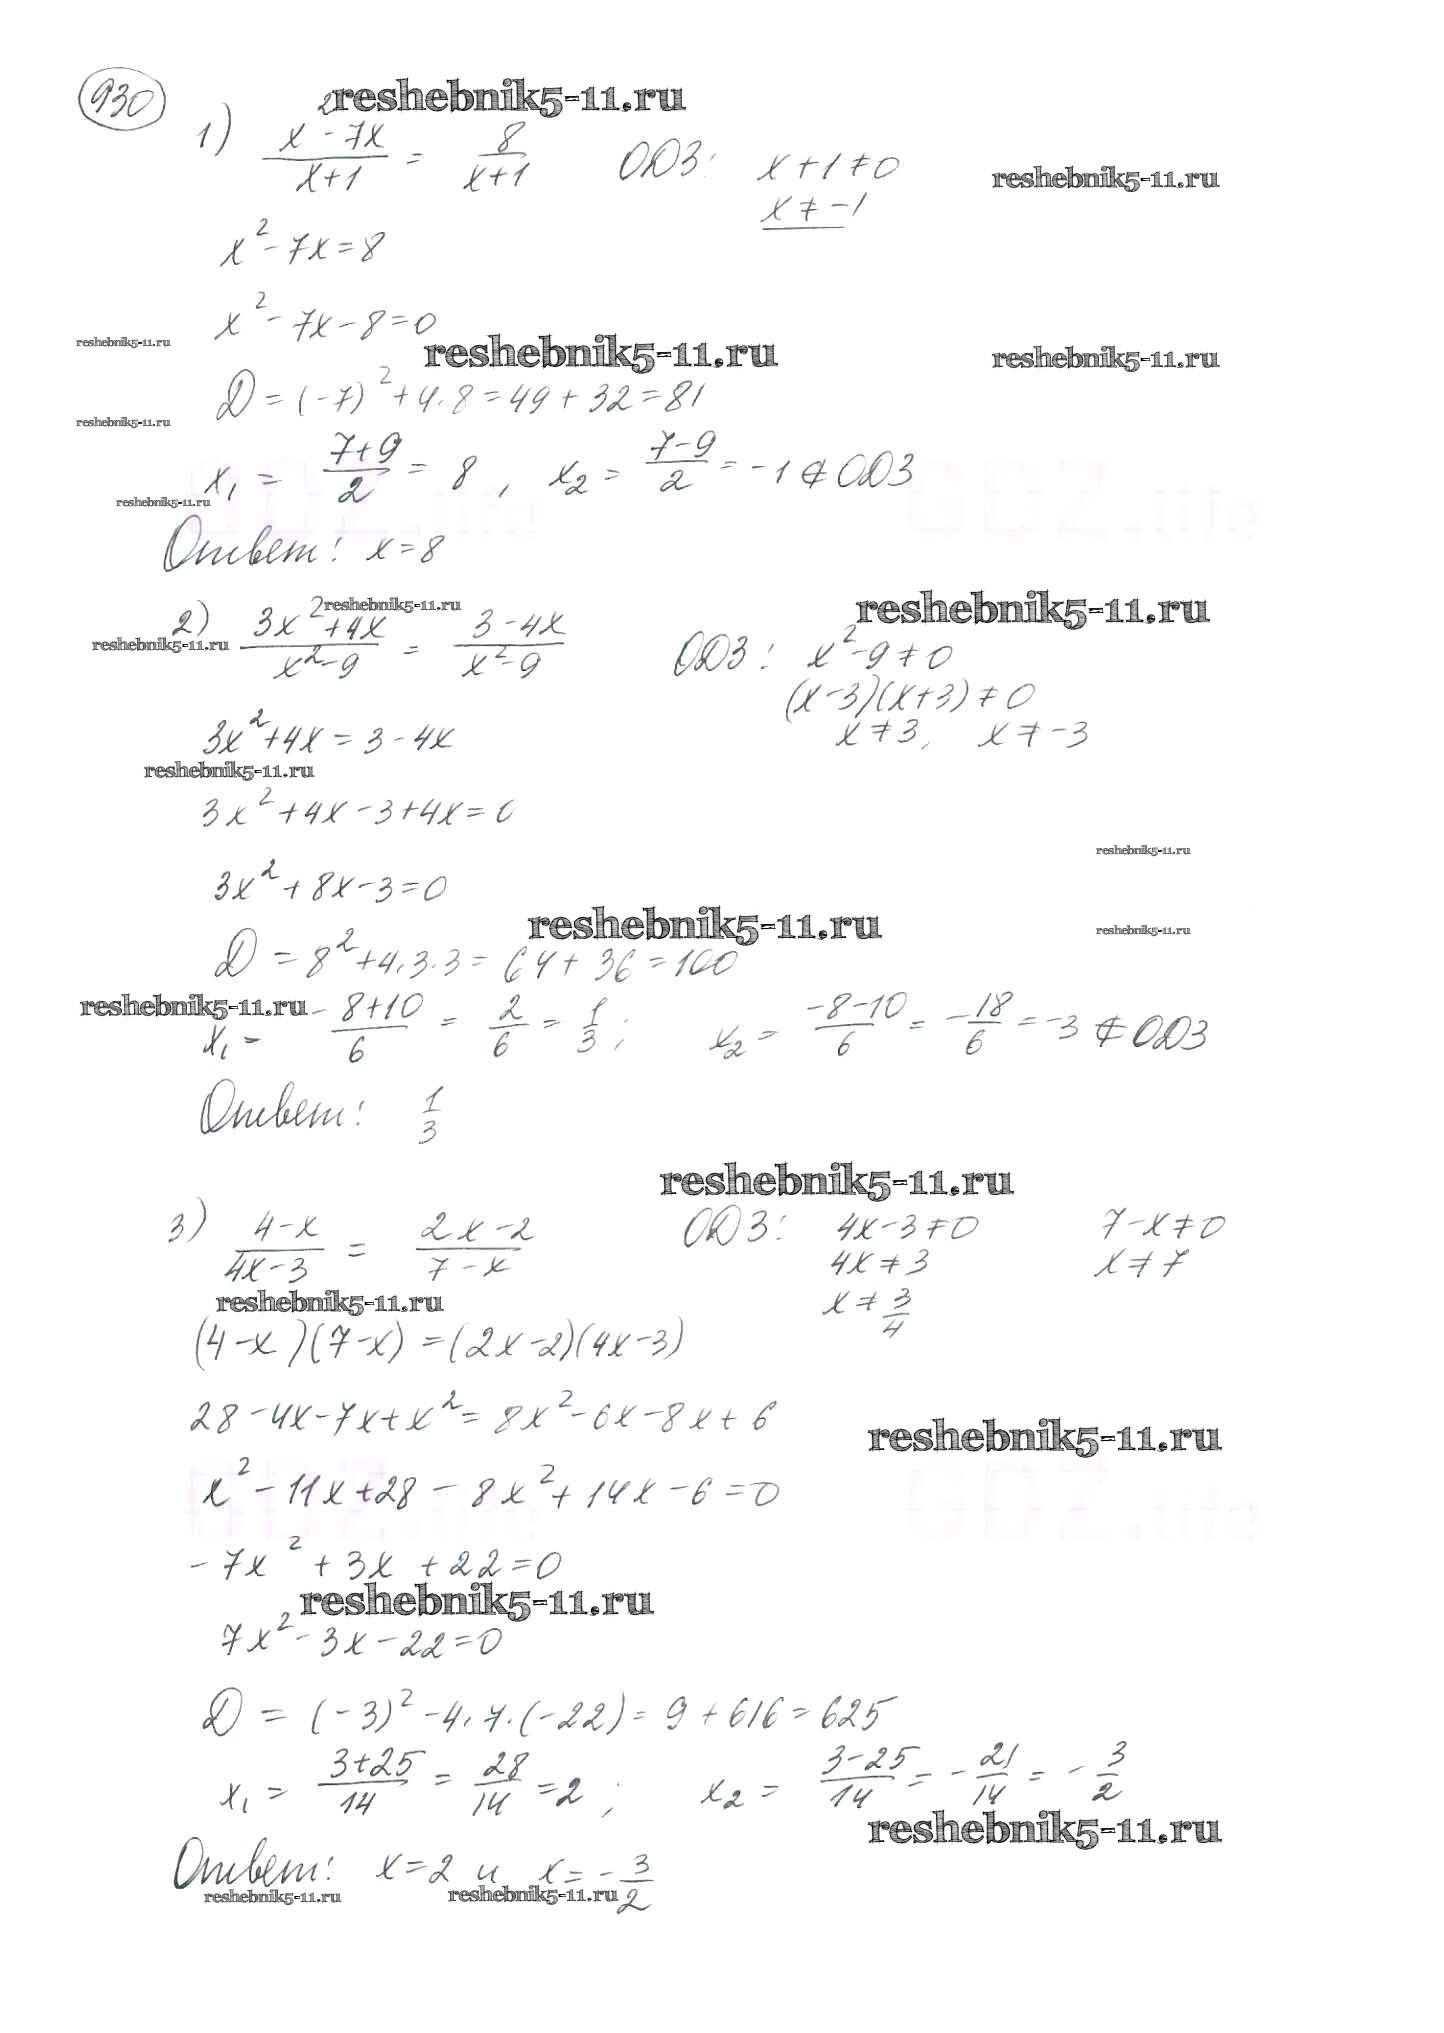 930
reshebnik5-11.ru
1) (x² - 7x)/(x+1) = 8/(x+1) ОДЗ: x + 1 ≠ 0
reshebnik5-11.ru
x ≠ -1
x² - 7x = 8
x² - 7x - 8 = 0
reshebnik5-11.ru
reshebnik5-11.ru
reshebnik5-11.ru
D = (-7)² + 4·8 = 49 + 32 = 81
reshebnik5-11.ru
x₁ = (7+9)/2 = 8, x₂ = (7-9)/2 = -1 ∉ ОДЗ
reshebnik5-11.ru
GDZ.life GDZ.life
Ответ: x = 8
reshebnik5-11.ru
reshebnik5-11.ru
2) (3x²+4x)/(x²-9) = (3-4x)/(x²-9) ОДЗ: x² - 9 ≠ 0
reshebnik5-11.ru
(x-3)(x+3) ≠ 0
3x² + 4x = 3 - 4x x ≠ 3, x ≠ -3
reshebnik5-11.ru
3x² + 4x - 3 + 4x = 0
reshebnik5-11.ru
3x² + 8x - 3 = 0
reshebnik5-11.ru
reshebnik5-11.ru
D = 8² + 4·3·3 = 64 + 36 = 100
reshebnik5-11.ru
x₁ = (-8+10)/6 = 2/6 = 1/3; x₂ = (-8-10)/6 = -18/6 = -3 ∉ ОДЗ
Ответ: 1/3
reshebnik5-11.ru
3) (4-x)/(4x-3) = (2x-2)/(7-x) ОДЗ: 4x-3 ≠ 0 7-x ≠ 0
4x ≠ 3 x ≠ 7
reshebnik5-11.ru
x ≠ 3/4
(4-x)(7-x) = (2x-2)(4x-3)
28 - 4x - 7x + x² = 8x² - 6x - 8x + 6
reshebnik5-11.ru
x² - 11x + 28 - 8x² + 14x - 6 = 0
GDZ.life GDZ.life
-7x² + 3x + 22 = 0
reshebnik5-11.ru
7x² - 3x - 22 = 0
D = (-3)² - 4·7·(-22) = 9 + 616 = 625
x₁ = (3+25)/14 = 28/14 = 2; x₂ = (3-25)/14 = -21/14 = -3/2
reshebnik5-11.ru
Ответ: x = 2 и x = -3/2
reshebnik5-11.ru reshebnik5-11.ru